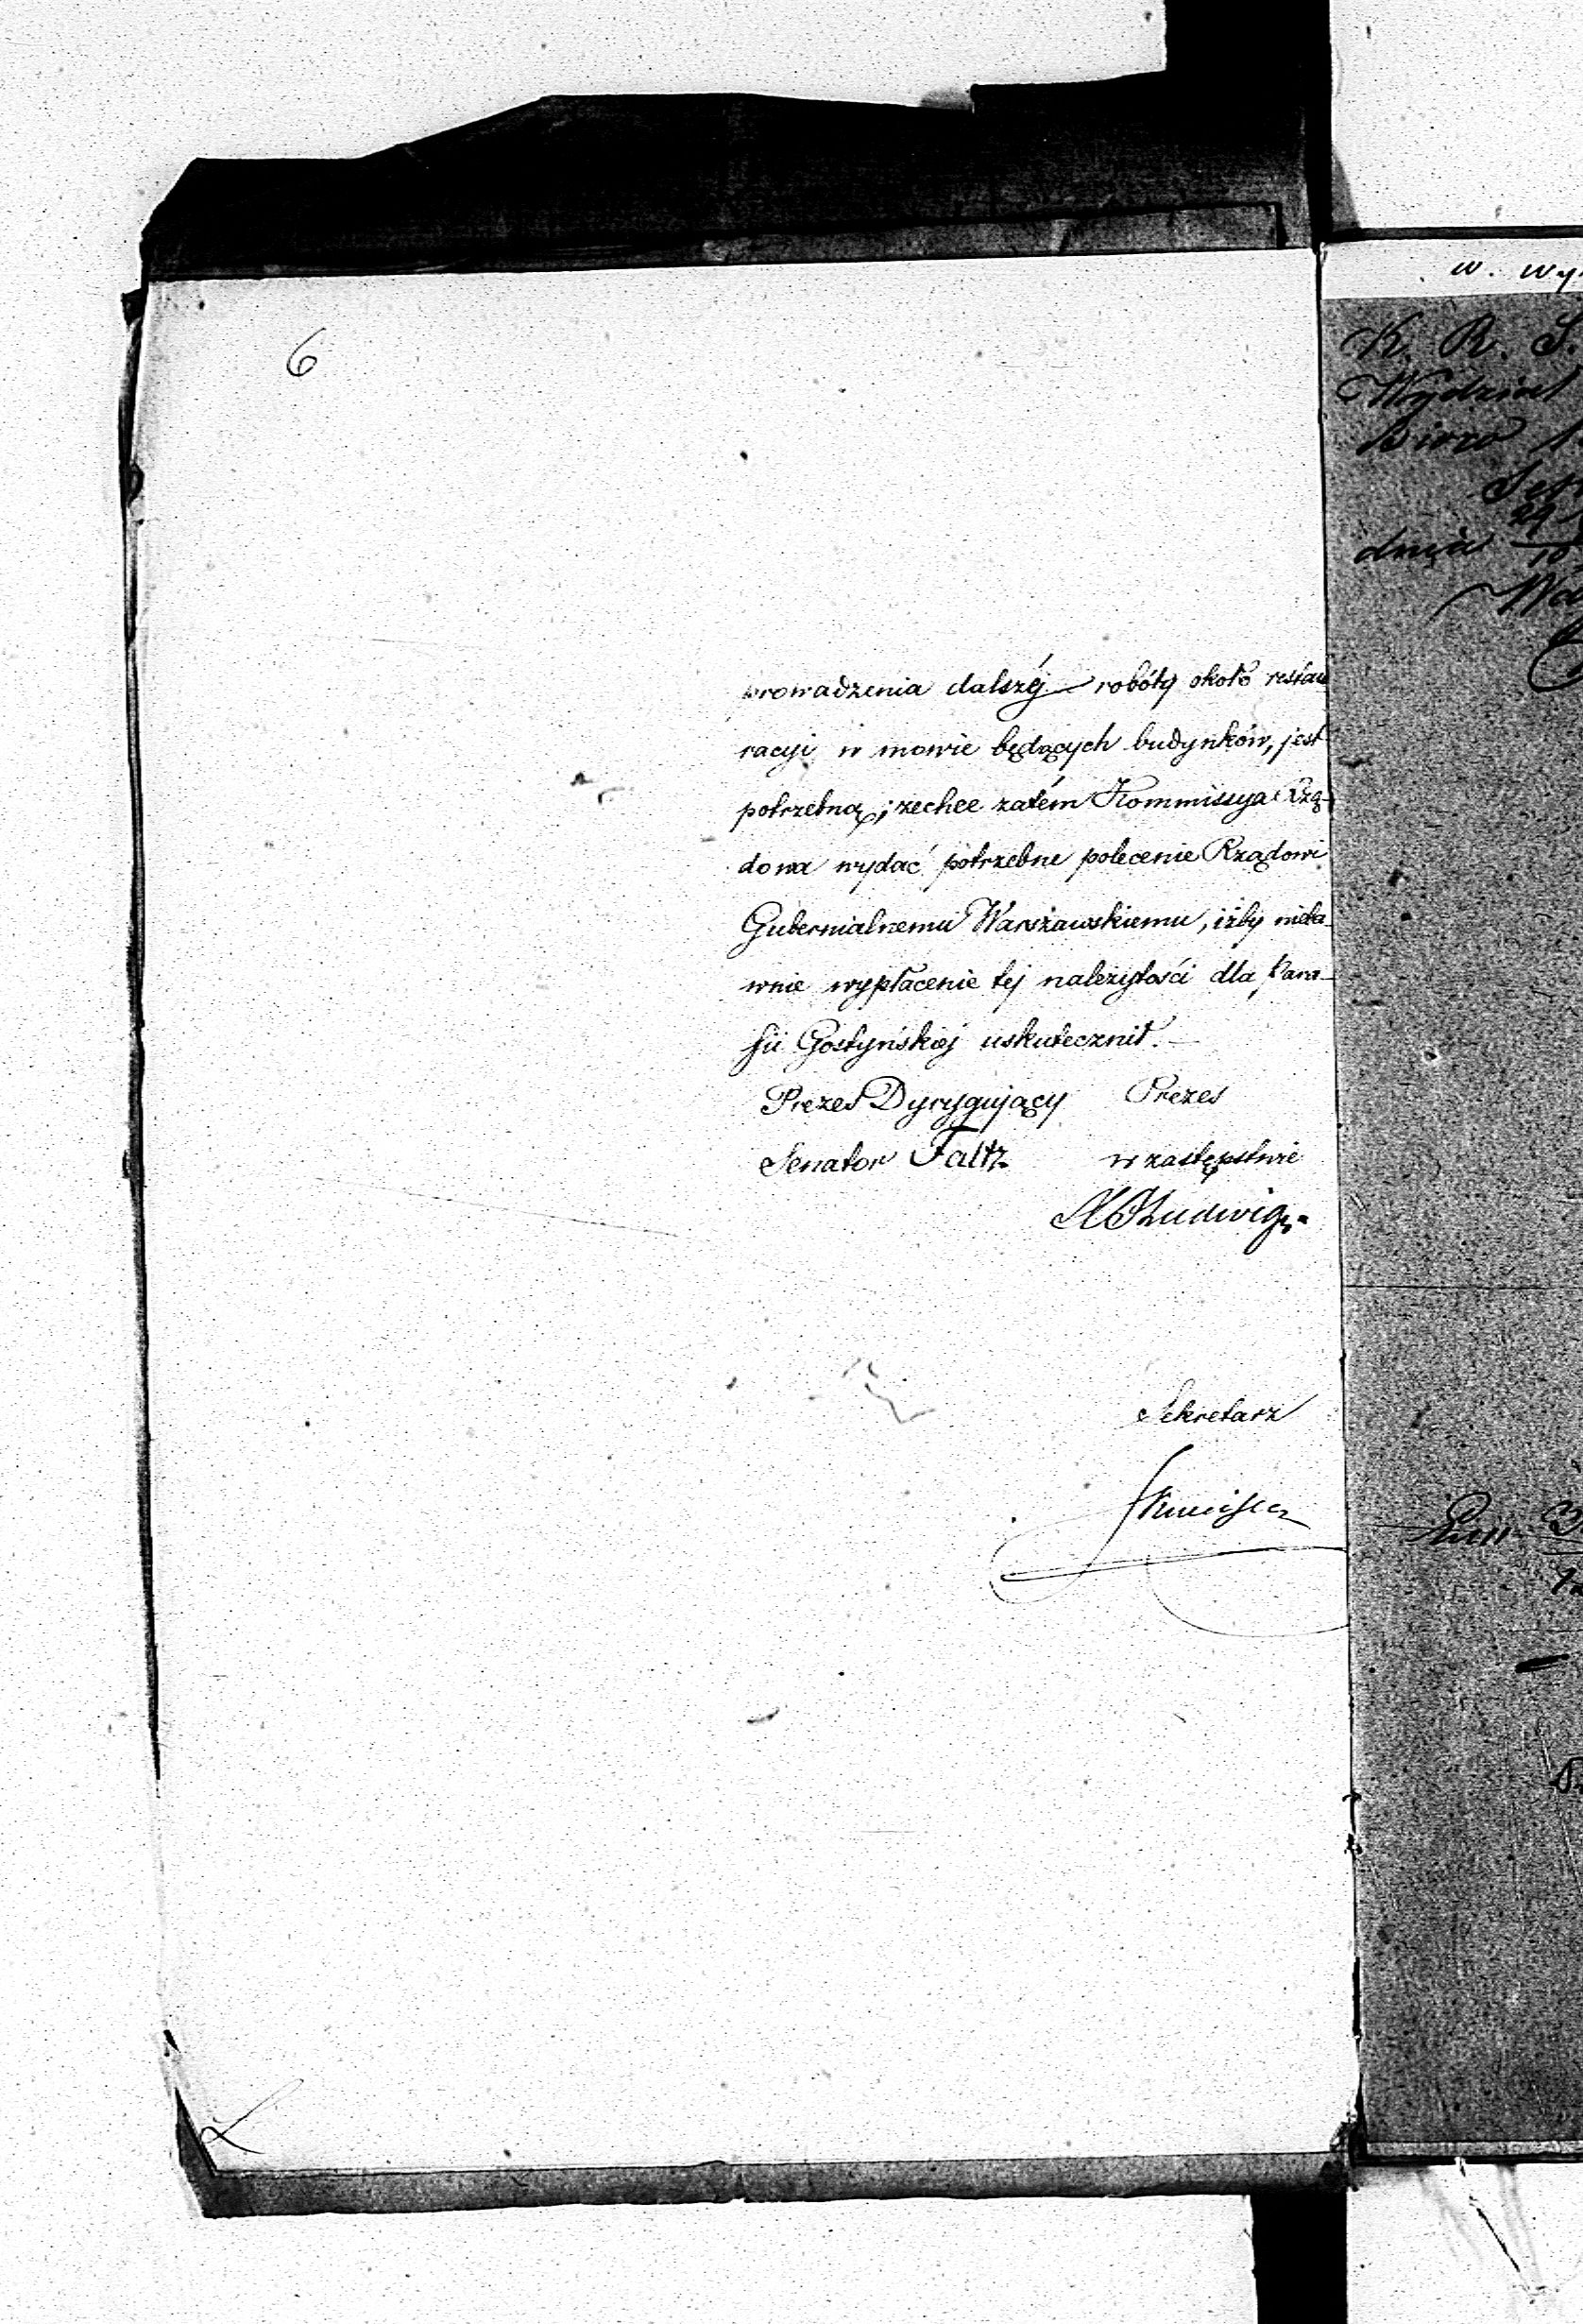 6
prowadzenia dalszéj robóty około restau
racyi w mowie będących budynków, jest
potrzebną; zechce zatém Kommissya Rzą-
dowa wydać potrzebne polecenie Rządowi
Gubernialnemu Warszawskiemu, iżby nieba-
wnie wypłacenie tej należytości dla Para-
fii Gostyńskiej uskutecznił.
Prezes Dyrygujący Prezes
Senator Faltz w zastępstwie
Ludwig
Sekretarz
w.
K. R. S.
Wydział
Biuro
dnia 29
10